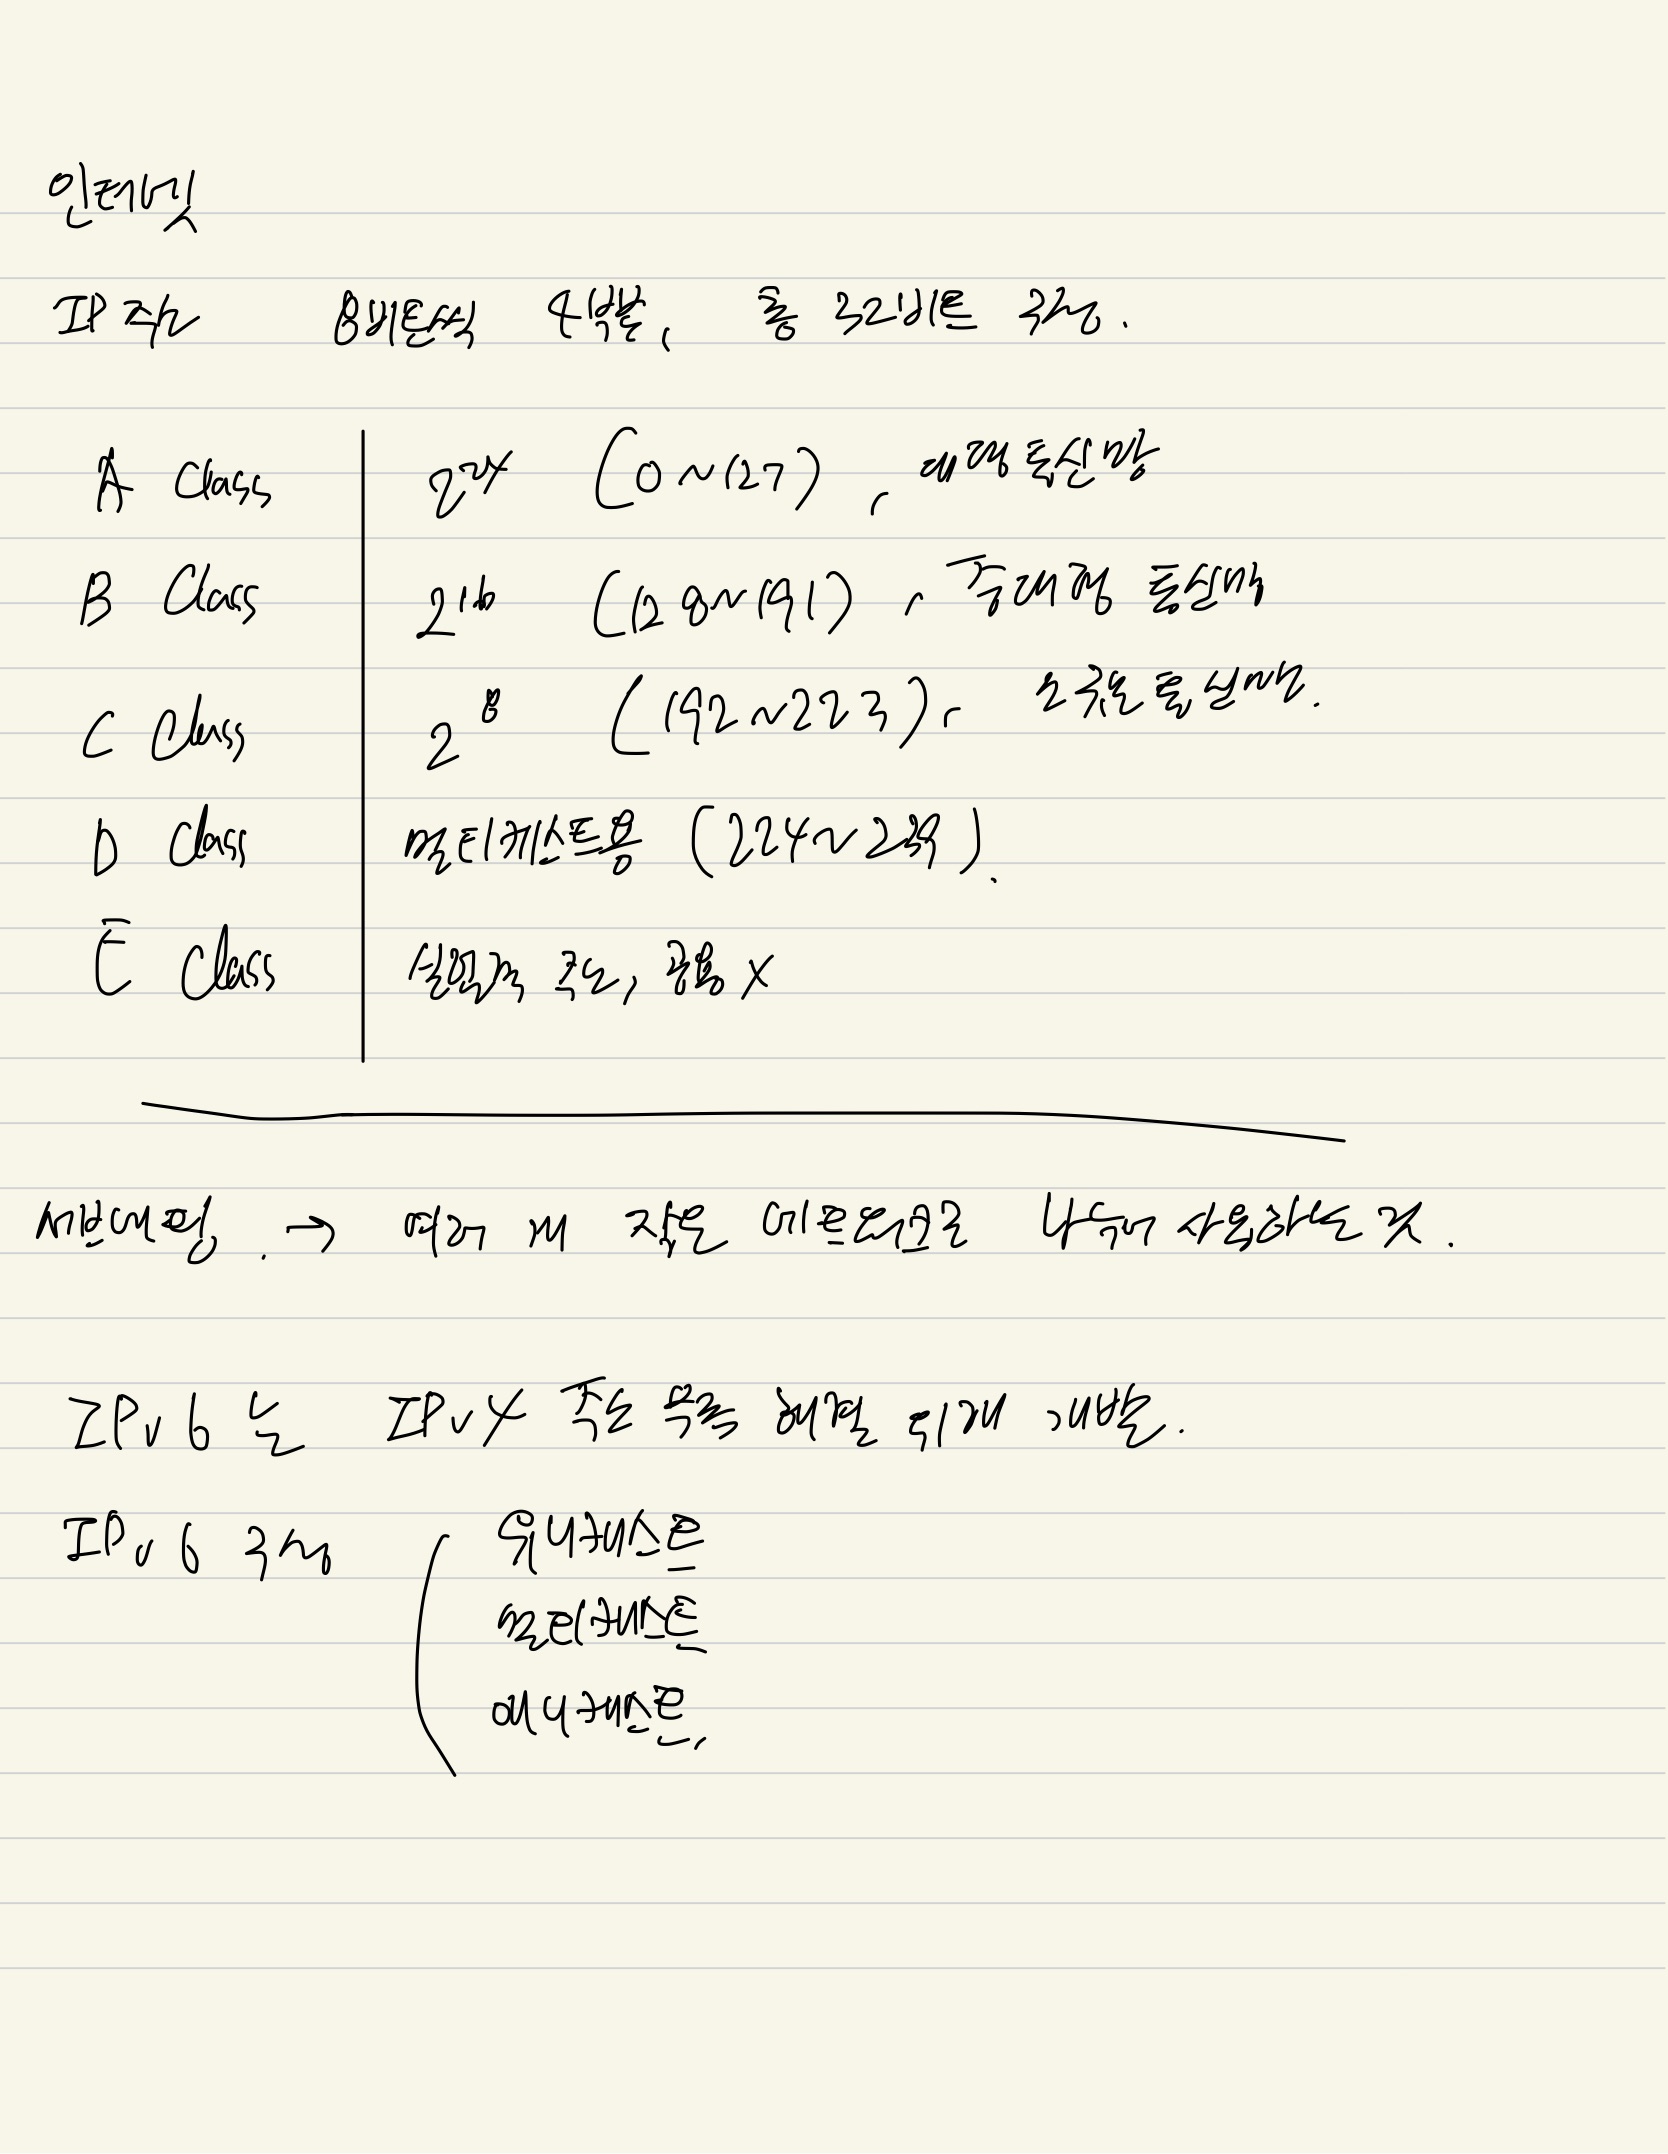 인터넷
IP 주소 8비트씩 4부분, 총 32비트 구성.
A Class 2^24 (0~127), 대형 통신망
B Class 2^16 (128~191), 중대형 통신망
C Class 2^8 (192~223), 소규모 통신망.
D Class 멀티캐스트용 (224~239).
E Class 실험적 주소, 공용 X
서브네팅. → 여러 개 작은 네트워크로 나누어 사용하는 것.
IPv6 는 IPv4 주소 부족 해결 위해 개발.
IPv6 구성 유니캐스트
멀티캐스트
애니캐스트,